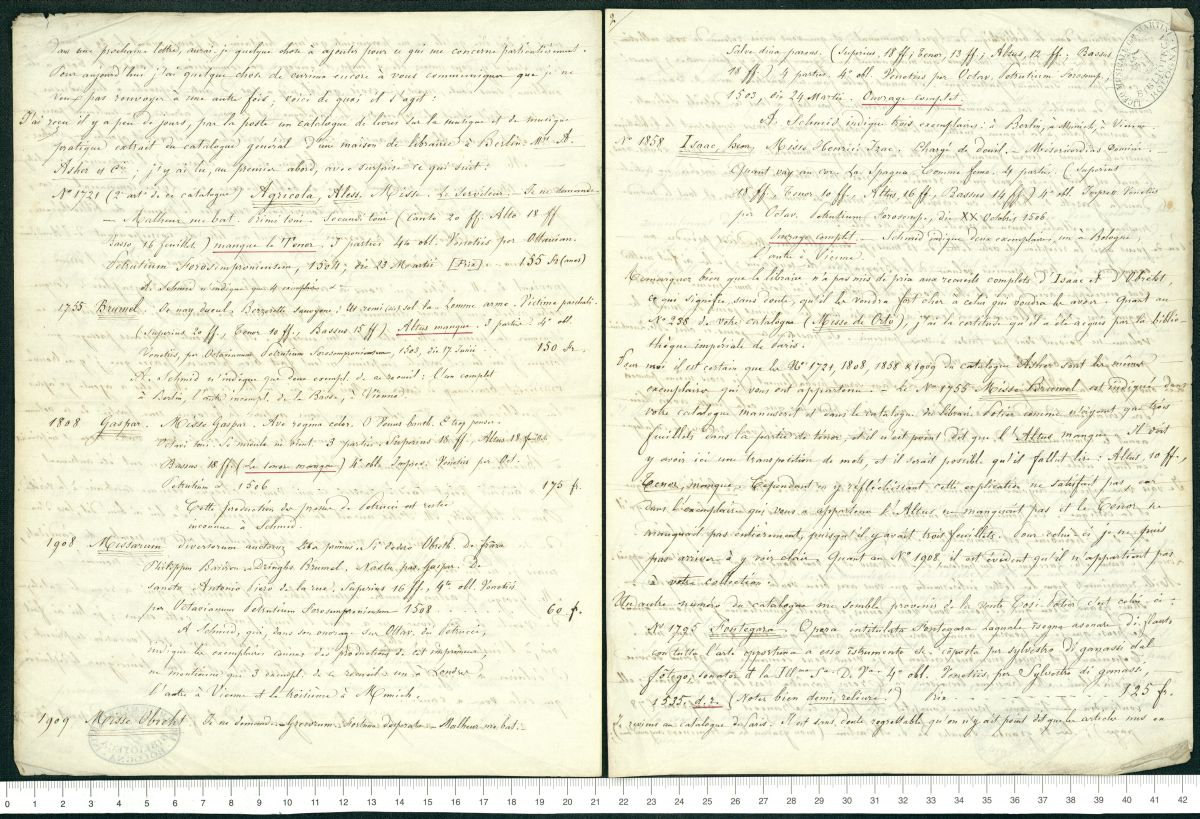 Dans une prochaine lettre, aurai-je quelque chose à ajouter pour ce qui me concerne particulièrement.
Pour aujourd'hui j'ai quelque chose de curieux encore à vous communiquer que je ne
veux pas renvoyer à une autre fois; voici de quoi il s'agit:
J'ai reçu il y a peu de jours, par la poste un catalogue de livres sur la musique et de musique
pratique extrait du catalogue général d'un maison de librairie à Berlin. Mrs A.
Asher et Cie; j'y ai lu, au premier abord, avec surprise ce qui suit:
No 1721 (2 art. de ce catalogue) Agricola, Alex. Misse. Le Serviteur. Je ne demande
— Malheur me bat. Primi toni. Secundi toni (Canto 20 ff. Alto 18 ff
Basso, 16 feuillets.) manque le Tenor. 3 parties 4to obl. Venetiis per Octavian.
Petrutium Forosemproniensem, 1504; die 23 Martii [Prix] 155 fr
A. Schmid n'indique que 4 exemplaires
1755 Brumel. Je nay dueul. Berzerette savoyene. Ut re mi fa sol la. Lomme arme. Victime paschali.
(Superius 20 ff, Tenor 10 ff, Bassus 15 ff) Altus manque. 3 parties 4o obl.
Venetiis, per Octavianum Petrutium Forosemproniensem 1503, die 17 Junii 150 fr.
A. Schmid n'indique que deux exempl. de ce recueil: l'un complet
à Berlin, l'autre incompl. de la Basse, à Vienne.
1808 Gaspar. Misse Gaspar. Ave regina celor. O Venus banth. E trop penser.
Octavi toni. Se mieulx ne vient. 3 partie. Superius 18 ff, Altus 18 feuillets
Bassus 18 ff. (Le tenor manque) 4o obl. Impres. Venetiis per Oct.
Petrutium 1506 175 fr.
Cette production des presses de Petrucci est restée
inconnue à Schmid.
1908 Missarum diversorum auctorum liber primus. Si dedero Obreth. De franza
Philippus Basiron. Dringhs Brumel. Nastu pas. Gaspar. De
sancto Antonio Piero de la rue. Superius 16 ff, 4to obl. Venetiis
per Octavianum Petrutium Forosemproniensem 1508 60 fr.
A Schmid, qui, dans son ouvrage sur Ottav. da Petrucci,
indique les exemplaires connus des productions de cet imprimeur,
ne mentionne que 3 exempl. de ce recueil: un à Londres
l'autre à Vienne et le troisième à Munich.
1909 Misse Obreht. Je ne demande. Grecorum. Fortuna desperata. Malheur me bat.
2
Salve diva parens. (Superius 18 ff; Tenor, 13 ff; Altus, 12 ff, Bassus
18 ff.) 4 parties. 4o obl. Venetiis per Octav. Petrutium Forosemp.,
1503, die 24 Martii. Ouvrage complet.
A. Schmid indique trois exemplaires: à Berlin, à Munich, à Vienne.
No 1858 Isaac, henr, Misse Henrici Izac. Chargé de deuil. Misericordias Domini.
Quant vay au cor. La Spagna. Comme feme. 4 parties. (Superius
18 ff, Tenor 10 ff, Altus, 16 ff. Bassus 14 ff) 4o obl. Impress. Venetiis
per Octav. Petrutium Forosemp., die XX Octobris 1506.
Ouvrage complet — Schmid indique deux exemplaires, un à Bologne,
l'autre à Vienne.
Remarquez bien que le libraire n'a pas mis de prix aux recueils complets d'Isaac et d'Obreht,
ce qui signifie, sans doute, qu'il les vendra fort cher à celui qui voudra les avoir. Quant au
No 238 de votre catalogue (Misse de Orto) j'ai la certitude qu'il a été acquis par la biblio-
thèque impériale de Paris.
Pour moi il est certain que les Nos 1721, 1808, 1858 & 1909 du catalogue Asher sont les mêmes
exemplaires qui vous ont appartenu. — Le No 1755 Misse Brumel est indiqué dans
votre catalogue manuscrit et dans le catalogue du libraire Potier comme n'ayant que trois
feuillets dans la partie de tenor, et il n'est point dit que l'Altus manque. Il doit
y avoir ici une transposition de mots, et il serait possible qu'il fallut lire: Altus, 10 ff,
Tenor manque. Cependant en y réfléchissant cette explication ne satisfait pas car
dans l'exemplaire qui vous a appartenu l'Altus ne manquait pas et le Tenor ne
manquait pas entièrement, puisqu'il y avait trois feuillets. Pour celui-ci je ne puis
pas arriver à y voir clair. Quant au No 1908, il est évident qu'il n'appartient pas
à votre collection.
Un autre numéro du catalogue me semble provenir de la vente Tosi-Potier, c'est celui-ci:
No 1795 Fontegara Opera intitulata Fontegara laquale insegna a sonare di flauto
con tutta l'arte opportuna a esso istrumento etc. coposta per sylvestro di ganassi dal
fōtego, sonator d. la Illma Sa D. Va 4o obl. Venetiis, per Sylvestro di ganassi,
1535. d. r. (Notez bien demi, reliure!) Prix 125 fr.
Je reviens au catalogue de Paris. Il est sans doute regrettable qu'on n'y ait point dit que les articles mis en